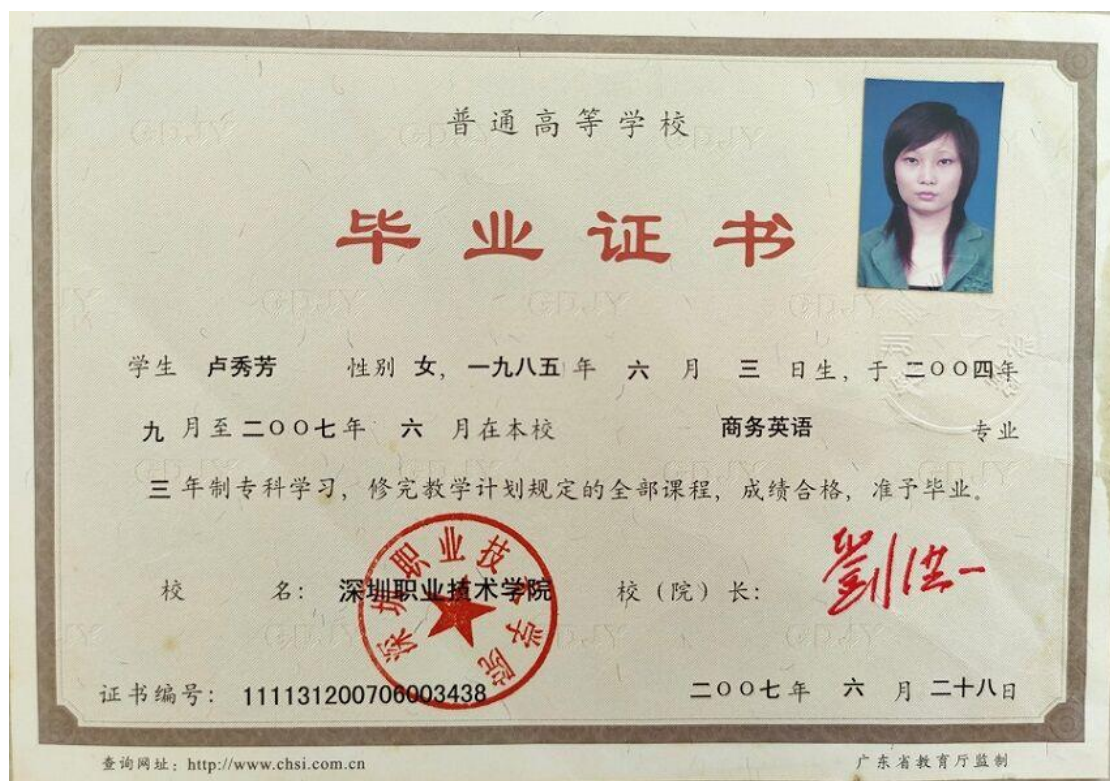 普通高等学校
毕业证书
学生 卢秀芳 性别 女, 一九八五年 六 月 三 日生, 于 二○○四年
九 月至二○○七年 六 月在本校 商务英语 专业
三 年制专科学习, 修完教学计划规定的全部课程, 成绩合格, 准予毕业。
校 名: 深圳职业技术学院 校 (院) 长: 劉洪一
深圳职业技术学院
证书编号: 111131200706003438 二○○七年 六 月 二十八日
查询网址: http://www.chsi.com.cn 广东省教育厅监制
GDJY